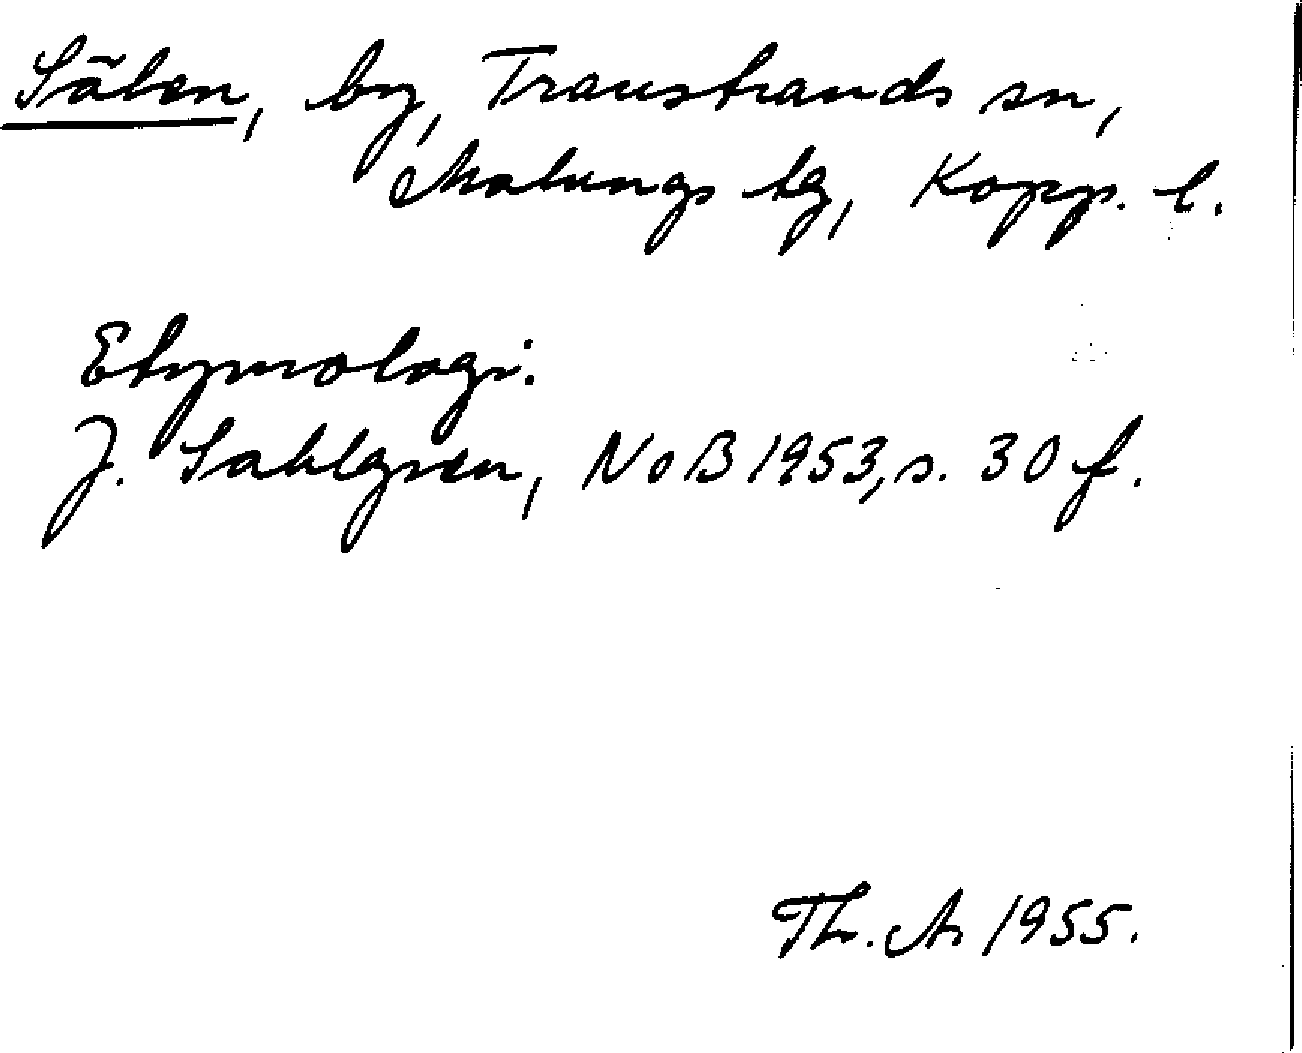 Sälen, by, Transtrands sn,
Malungs tg, Kopp. l.
Etymologi.
J. Sahlgren, NoB 1953, s. 30 f.
Th. A 1955.